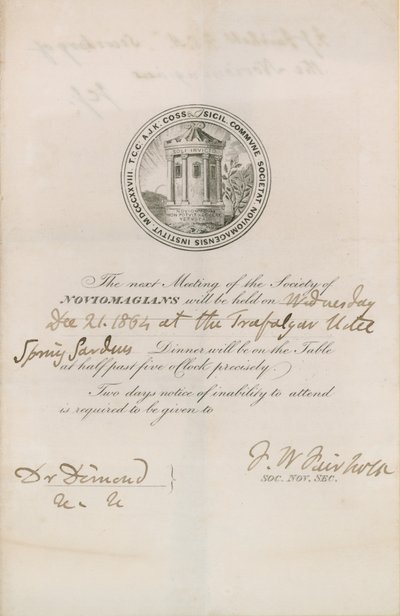 SICIL. COMMVNE SOCIETAT NOVIOMAGENSIS INSTITVT MDCCCXXVIII T.C.C. A.J.K. COSS
SOLI INVICTO
The next Meeting of the Society of
NOVIOMAGIANS will be held on Wednesday
Dec 21. 1864 at the Trafalgar Hotel
Spring Gardens Dinner will be on the Table
at half past five o'Clock precisely.
Two days notice of inability to attend
is required to be given to
F. W Fairholt
SOC. NOV. SEC.
Dr Dimond